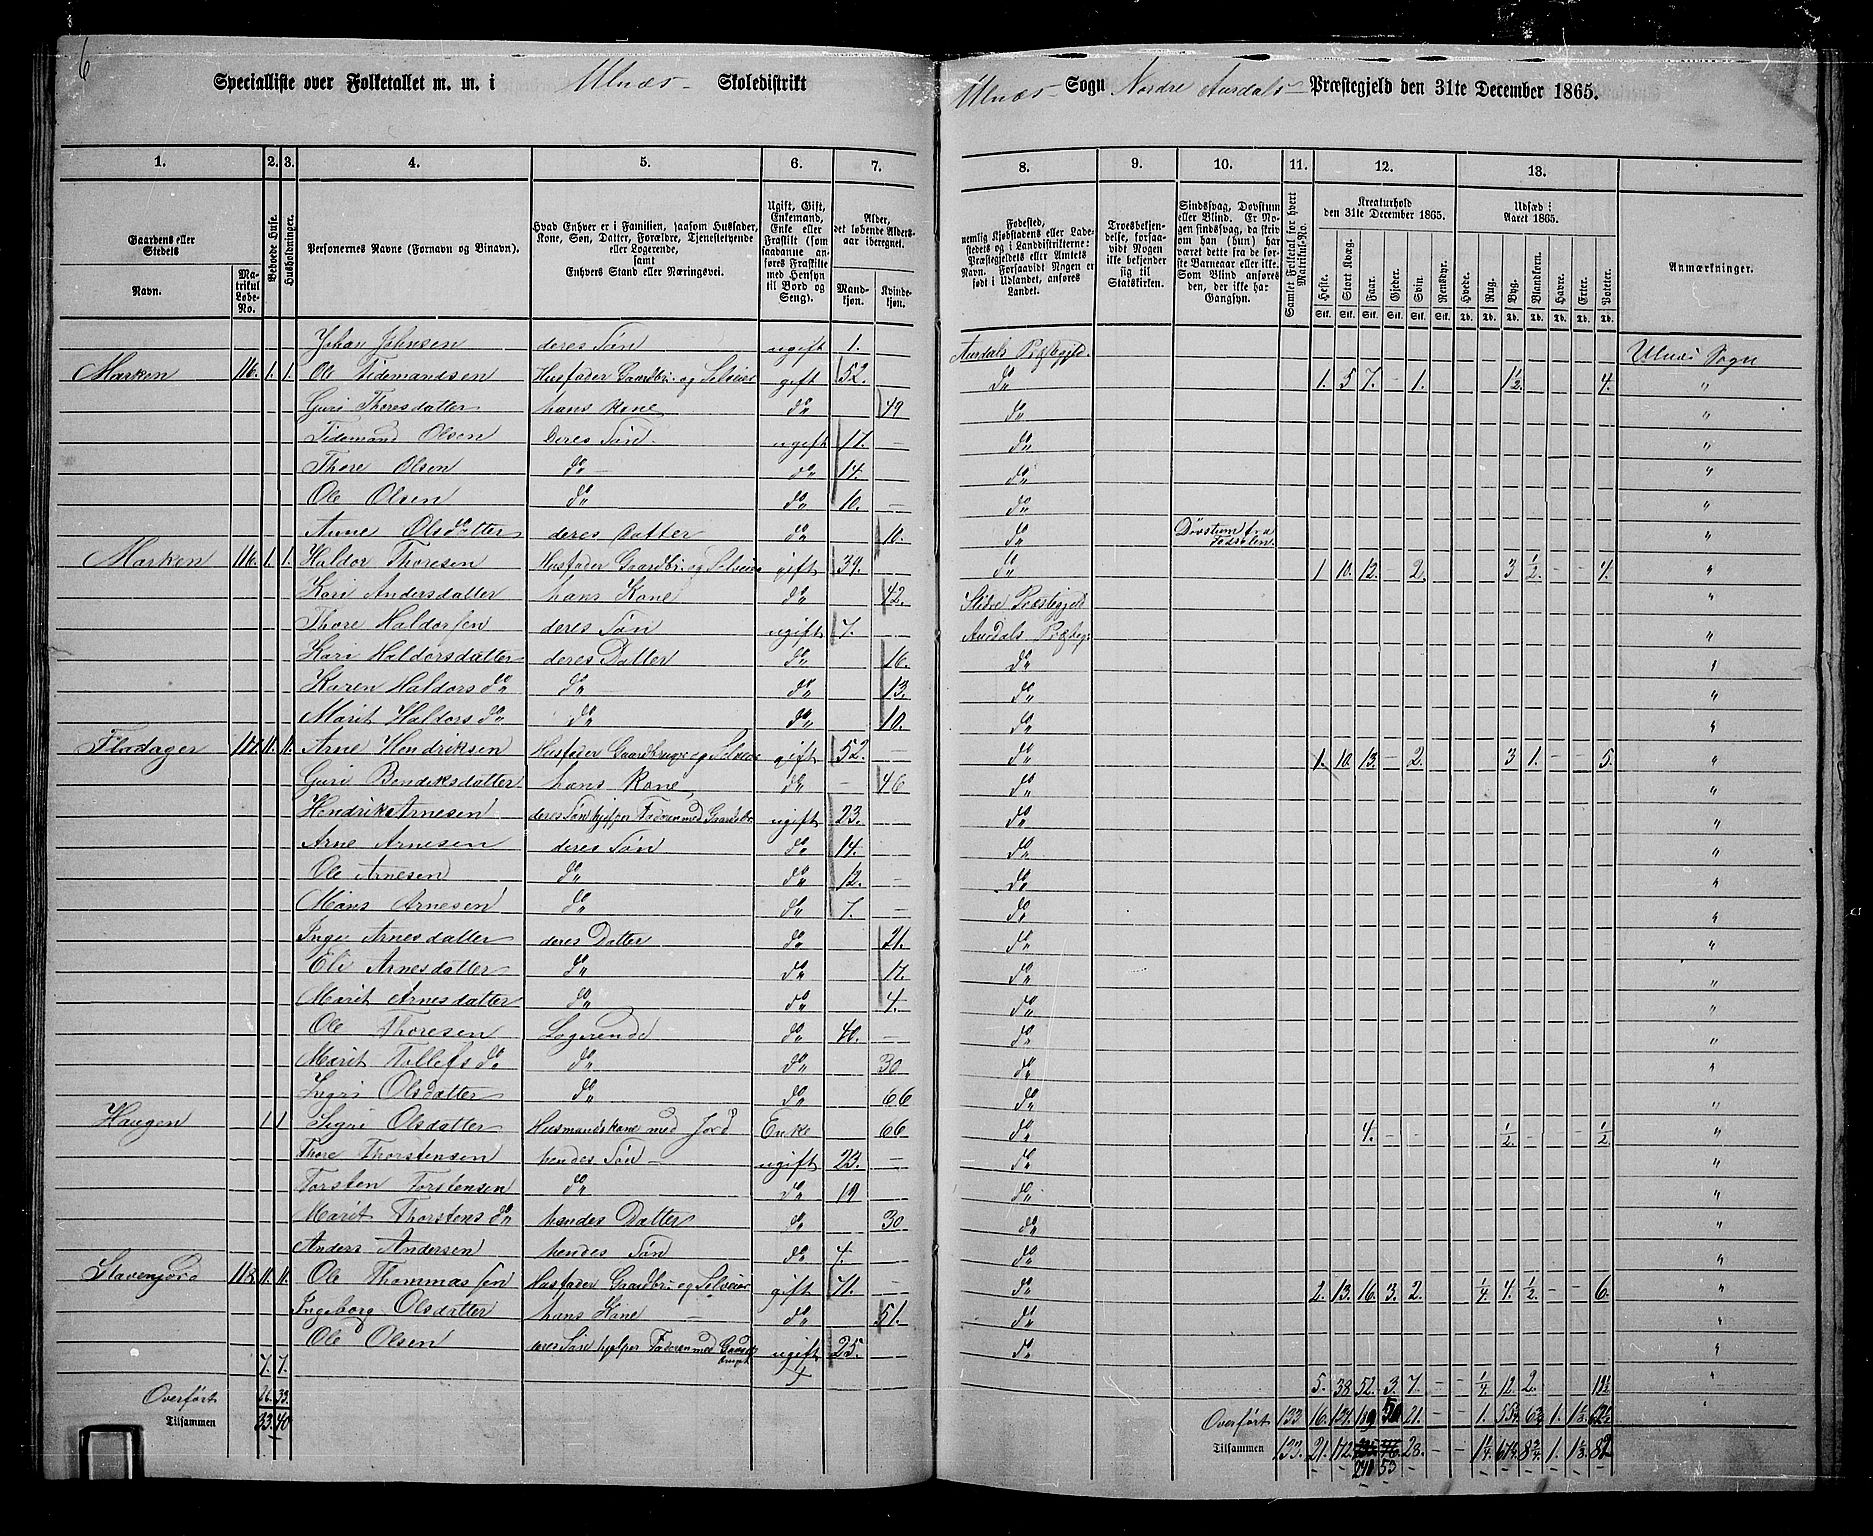 6
Specialliste over Folketallet m. m. i Ulnæs Skoledistrikt Ulnæs Sogn Nordre Aurdals Præstegjeld den 31te December 1865.
1. 2. 3. 4. 5. 6. 7. 8. 9. 10. 11. 12. 13.
Gaardens eller Stedets
Navn. Matrikul Løbe-No.
Beboede Huse.
Husholdninger.
Personernes Navne (Fornavn og Binavn).
Hvad Enhver er i Familien, saasom Husfader, Kone, Søn, Datter, Forældre, Tjenestetyende eller Logerende, samt Enhvers Stand eller Næringsvei.
Ugift, Gift, Enkemand, Enke eller Fraskilt (som saadanne anføres Fraskilte med Hensyn til Bord og Seng).
Alder, det løbende Aldersaar iberegnet.
Mandkjøn. Kvindekjøn.
Fødested, nemlig Kjøbstadens eller Ladestedets og i Landdistrikterne: Præstegjeldets eller Amtets Navn. Forsaavidt Nogen er født i Udlandet, anføres Landet.
Troesbekjendelse, forsaavidt Nogen ikke bekjender sig til Statskirken.
Sindssvag, Døvstum eller Blind. Er Nogen sindssvag, da skriv om han (hun) har været dette fra de første Barneaar eller ikke. Som Blind anføres den, der ikke har Gangsyn.
Samlet Folketal for hvert Matrikul-No.
Kreaturhold den 31te December 1865.
Heste. Stort Kvæg. Faar. Gjeder. Svin. Rensdyr.
Udsæd i Aaret 1865.
Hvede. Rug. Byg. Blandkorn. Havre. Erter. Poteter.
Anmærkninger.
Johan Johnsen deres Søn ugift 1. Aurdals Præstegjld. Ulnæs Sogn
Marken 116. 1. 1. Ole Tidemandsen Husfader Gaardbr. og Selveier gift 52. do 1. 5 7. - 1. 1½ 4. "
Guri Thoresdatter hans Kone do 49 do "
Tidemand Olsen deres Søn ugift 17. do "
Thore Olsen do do 14. do "
Ole Olsen do do 10. do "
Anne Olsdatter deres Datter do 10. do Døvstum fra Fødselen. "
Marken 116. 1. 1. Haldor Thoresen Husfader Gaardbr. og Selveier gift 39. do 1 10. 12. - 2. 3 ½ - - 4. "
Kari Andersdatter hans Kone do 42. Slidre Præstegjeld "
Thore Haldorsen deres Søn ugift 7. Aurdals Præsteg. "
Kari Haldorsdatter deres Datter do 16. do "
Karen Haldors do do do 13. do "
Marit Haldors do do do 10. do "
Fladager 117. 1. 1. Arne Hendriksen Husfader Gaardbruger og Selveier gift 52. do 1. 10. 13. - 2. 3 1. - - 5. "
Guri Bendiksdatter hans Kone do 46 do "
Hendrik Arnesen deres Søn hjelper Faderen med Gaardsbr. ugift 23. do "
Arne Arnesen deres Søn do 14. do "
Ole Arnesen do do 12. do "
Mons Arnesen do do 7. do "
Inge Arnesdatter deres Datter do 21. do "
Eli Arnesdatter do do 17. do "
Marit Arnesdatter do do 4. do "
Ole Thoresen Logerende do 40. do "
Marit Tollefs do do do 30 do "
Ingri Olsdatter do do 66 do "
Haugen 1 1 Sigri Olsdatter Husmandskone med Jord Enke 66 do 4. - - ½ - ½ "
Thore Thorstensen hendes Søn ugift 23. do "
Torsten Torstensen do do 19 do "
Marit Thorstens do hendes Datter do 30 do "
Anders Andersen hendes Søn do 7. do "
Stavenjord 118. 1. 1. Ole Thommassen Husfader Gaardbr. og Selveier gift 71. do 2. 13. 16. 3. 2. ¼ 4. ½ - - 6. "
Ingeborg Olsdatter hans Kone do 51. do "
Ole Olsen deres Søn hjelper Faderen med Gaards ugift 25. do "
7. 7. 5. 38 52. 3. 7. - - ¼ 12. 2.
Overført 26. 33. Overført 133 16. 21. - - 1. 1.
Tilsammen 33. 40 Tilsammen 133. 21. 172. 28. - - 1¼ 8¾ 1. 82
241 53